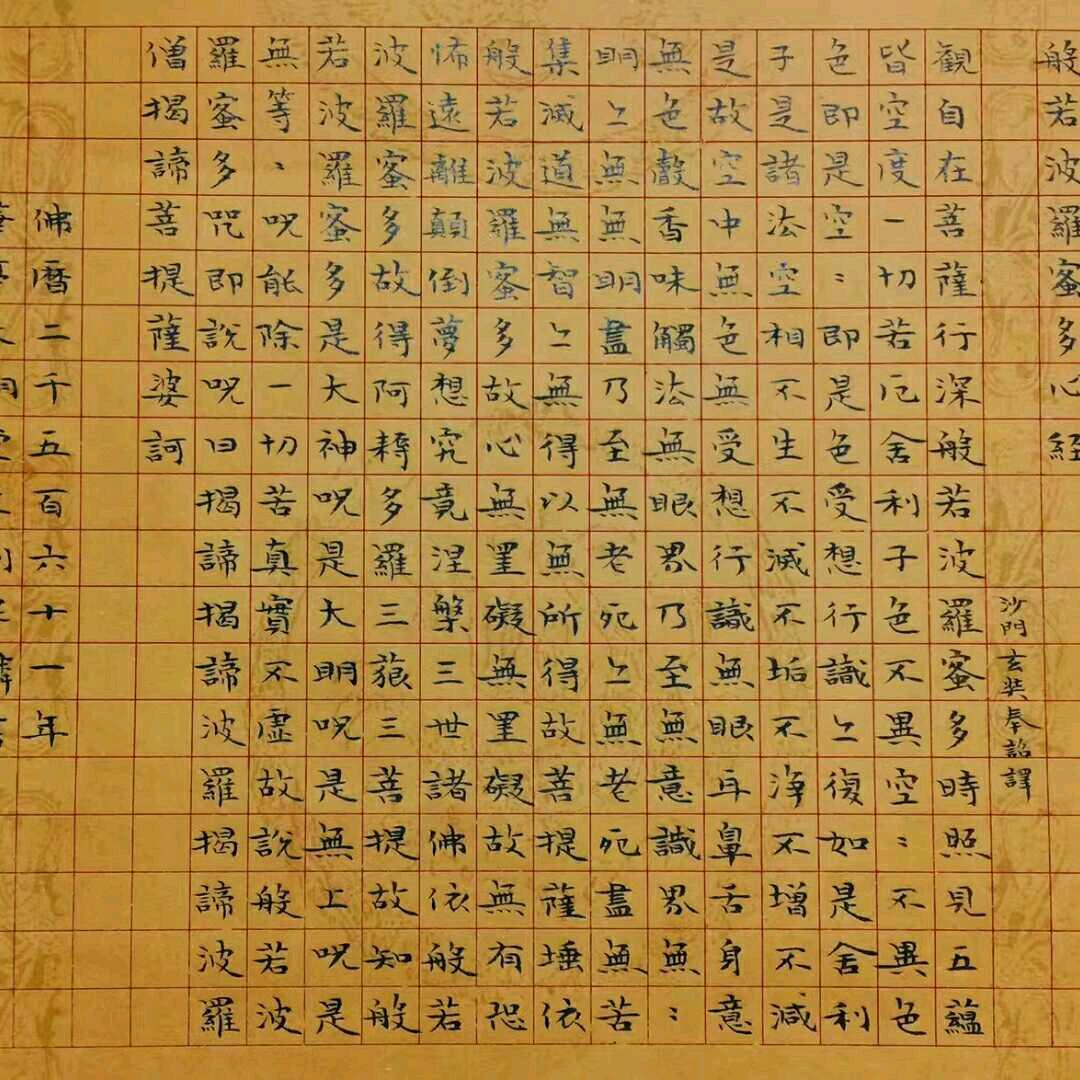 般若波羅蜜多心経
沙門玄奘奉詔譯
觀自在菩薩行深般若波羅蜜多時照見五蘊
皆空度一切若厄舍利子色不異空〻不異色
色即是空〻即是色受想行識亦復如是舍利
子是諸法空相不生不滅不垢不淨不增不減
是故空中無色無受想行識無眼耳鼻舌身意
無色聲香味觸法無眼界乃至無意識界無〻
明亦無無明盡乃至無老死亦無老死盡無苦
集滅道無智亦無得以無所得故菩提薩埵依
般若波羅蜜多故心無罣礙無罣礙故無有恐
怖遠離顛倒夢想究竟涅槃三世諸佛依般若
波羅蜜多故得阿耨多羅三藐三菩提故知般
若波羅蜜多是大神呪是大明呪是無上呪是
無等〻呪能除一切苦真實不虛故說般若波
羅蜜多咒即說呪曰揭諦揭諦波羅揭諦波羅
僧揭諦菩提薩婆訶
佛曆二千五百六十一年